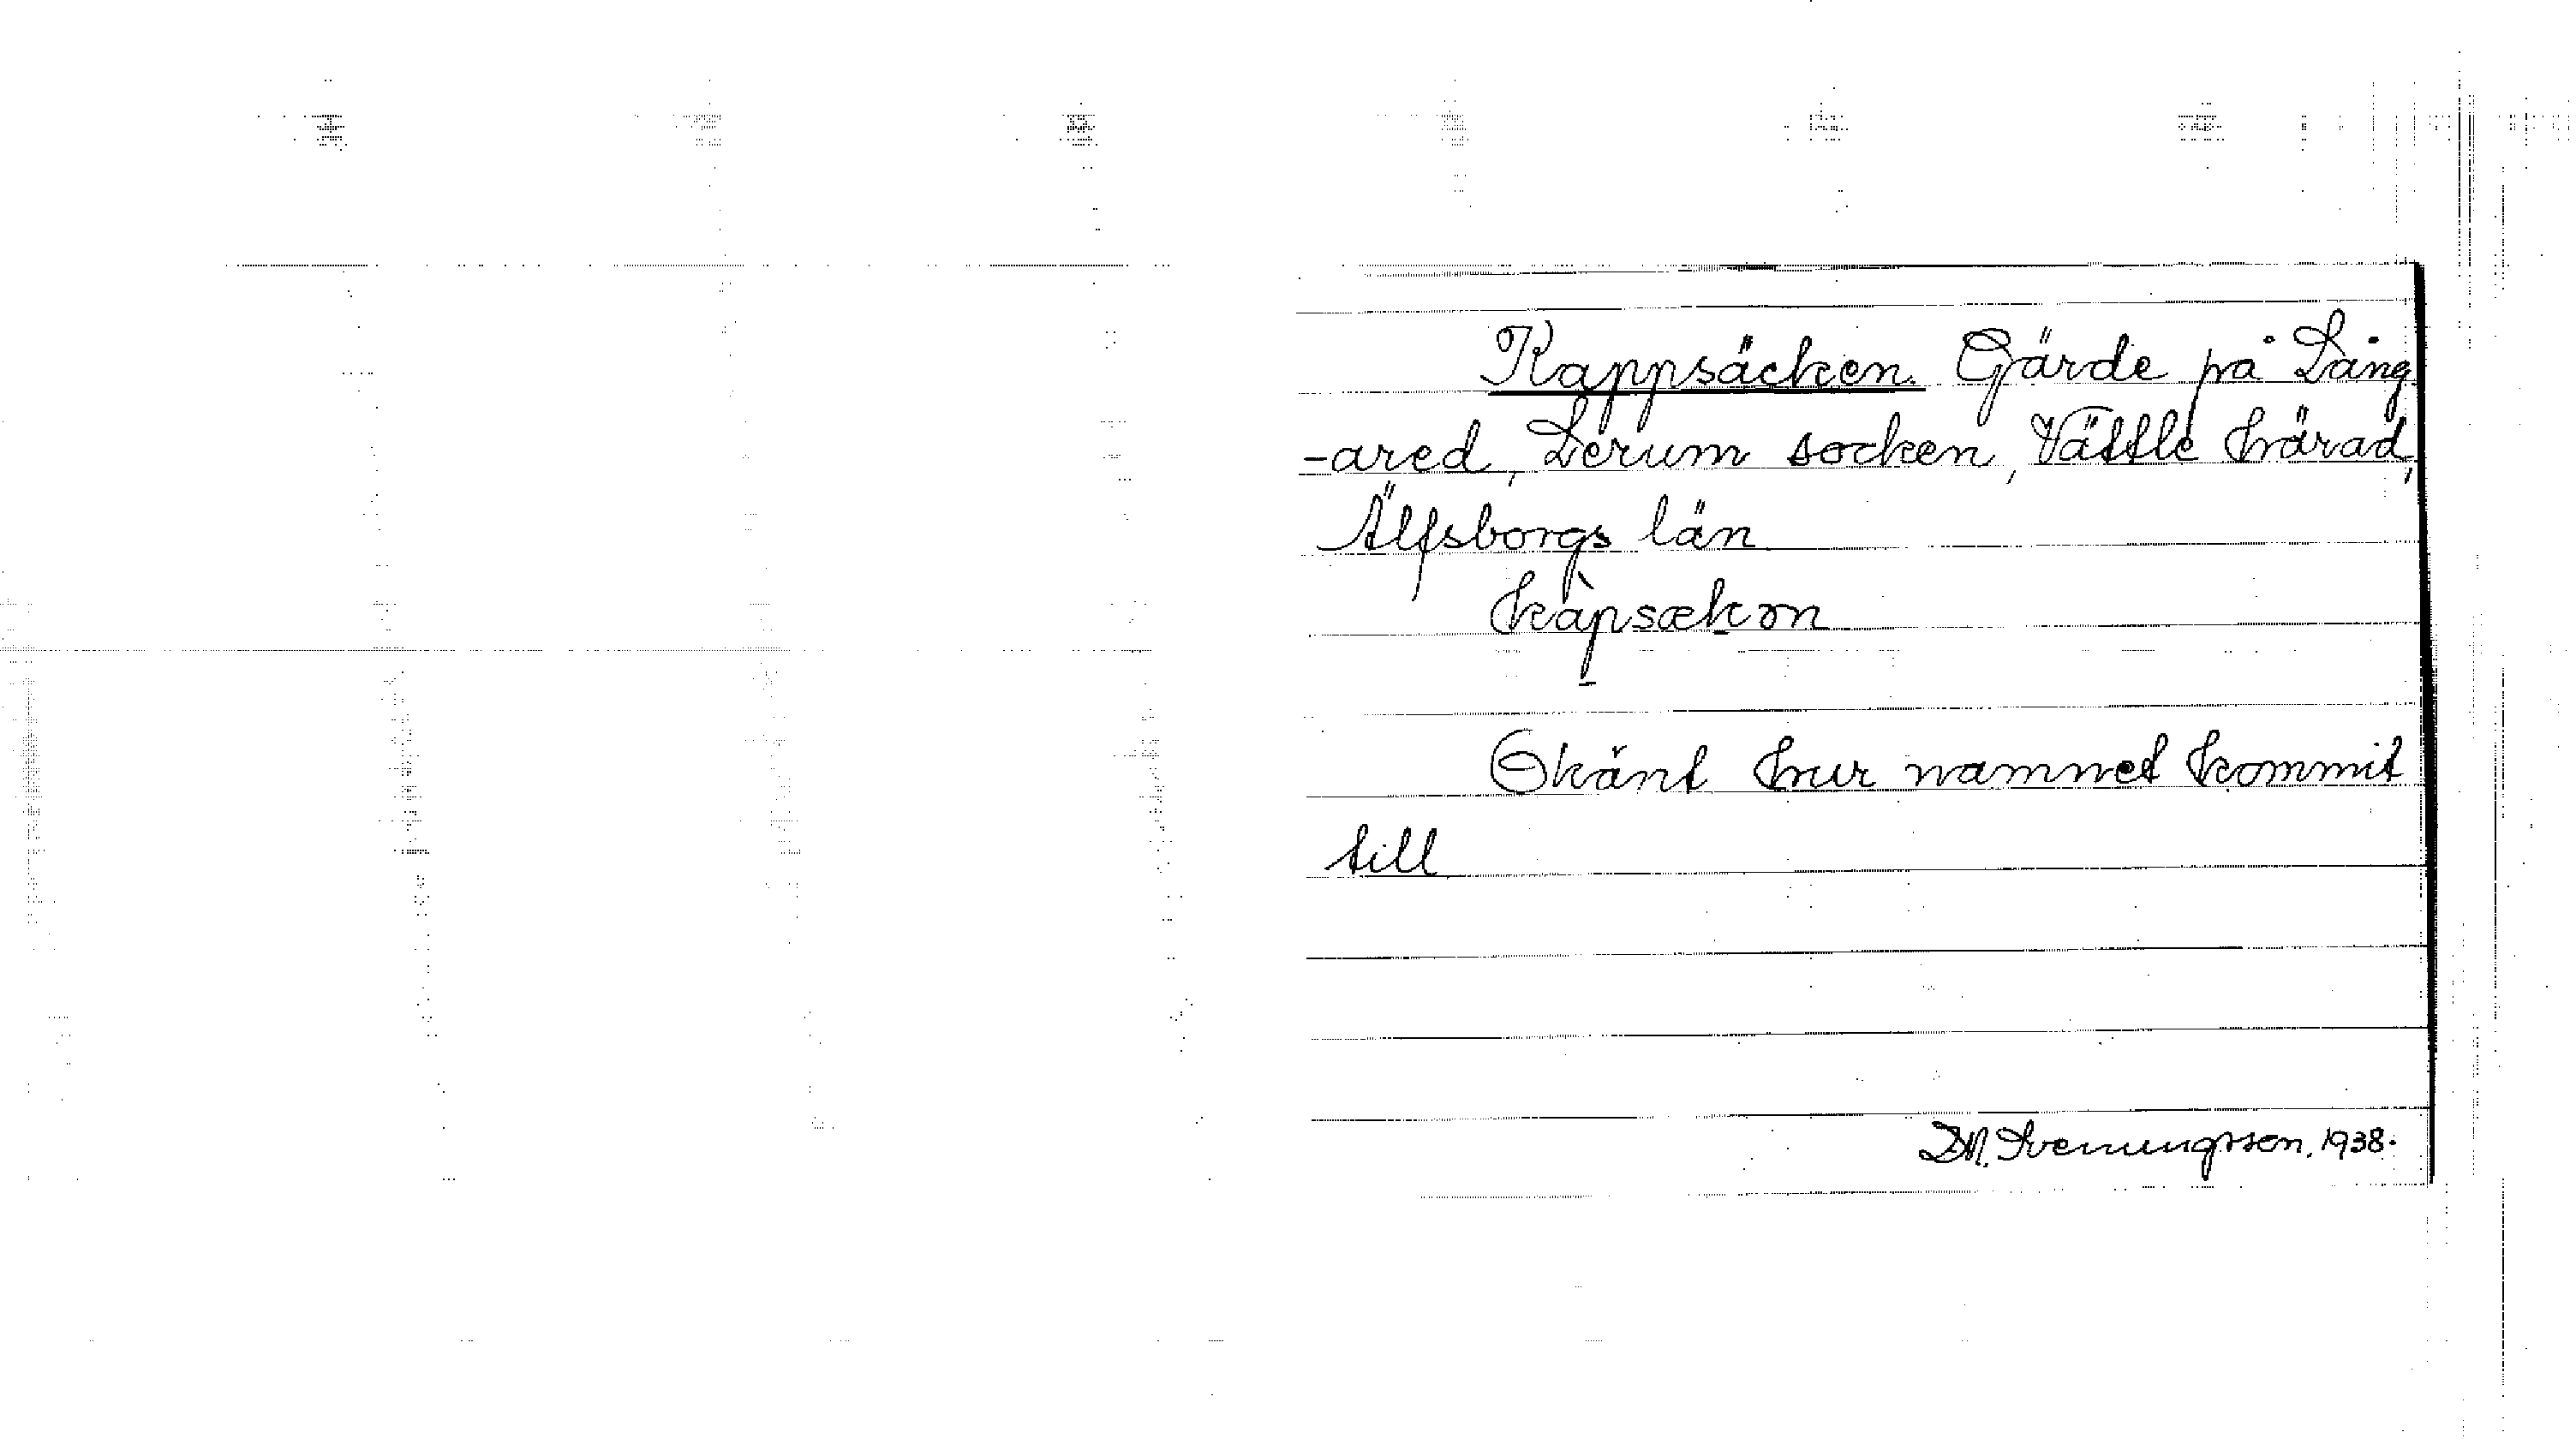 Kappsäcken. Gärde på Lång
-ared, Lerum socken, Vättle härad,
Älfsborgs län
kàpsækən
Okänt hur namnet kommit
till
D.N. Svenungsson. 1938.